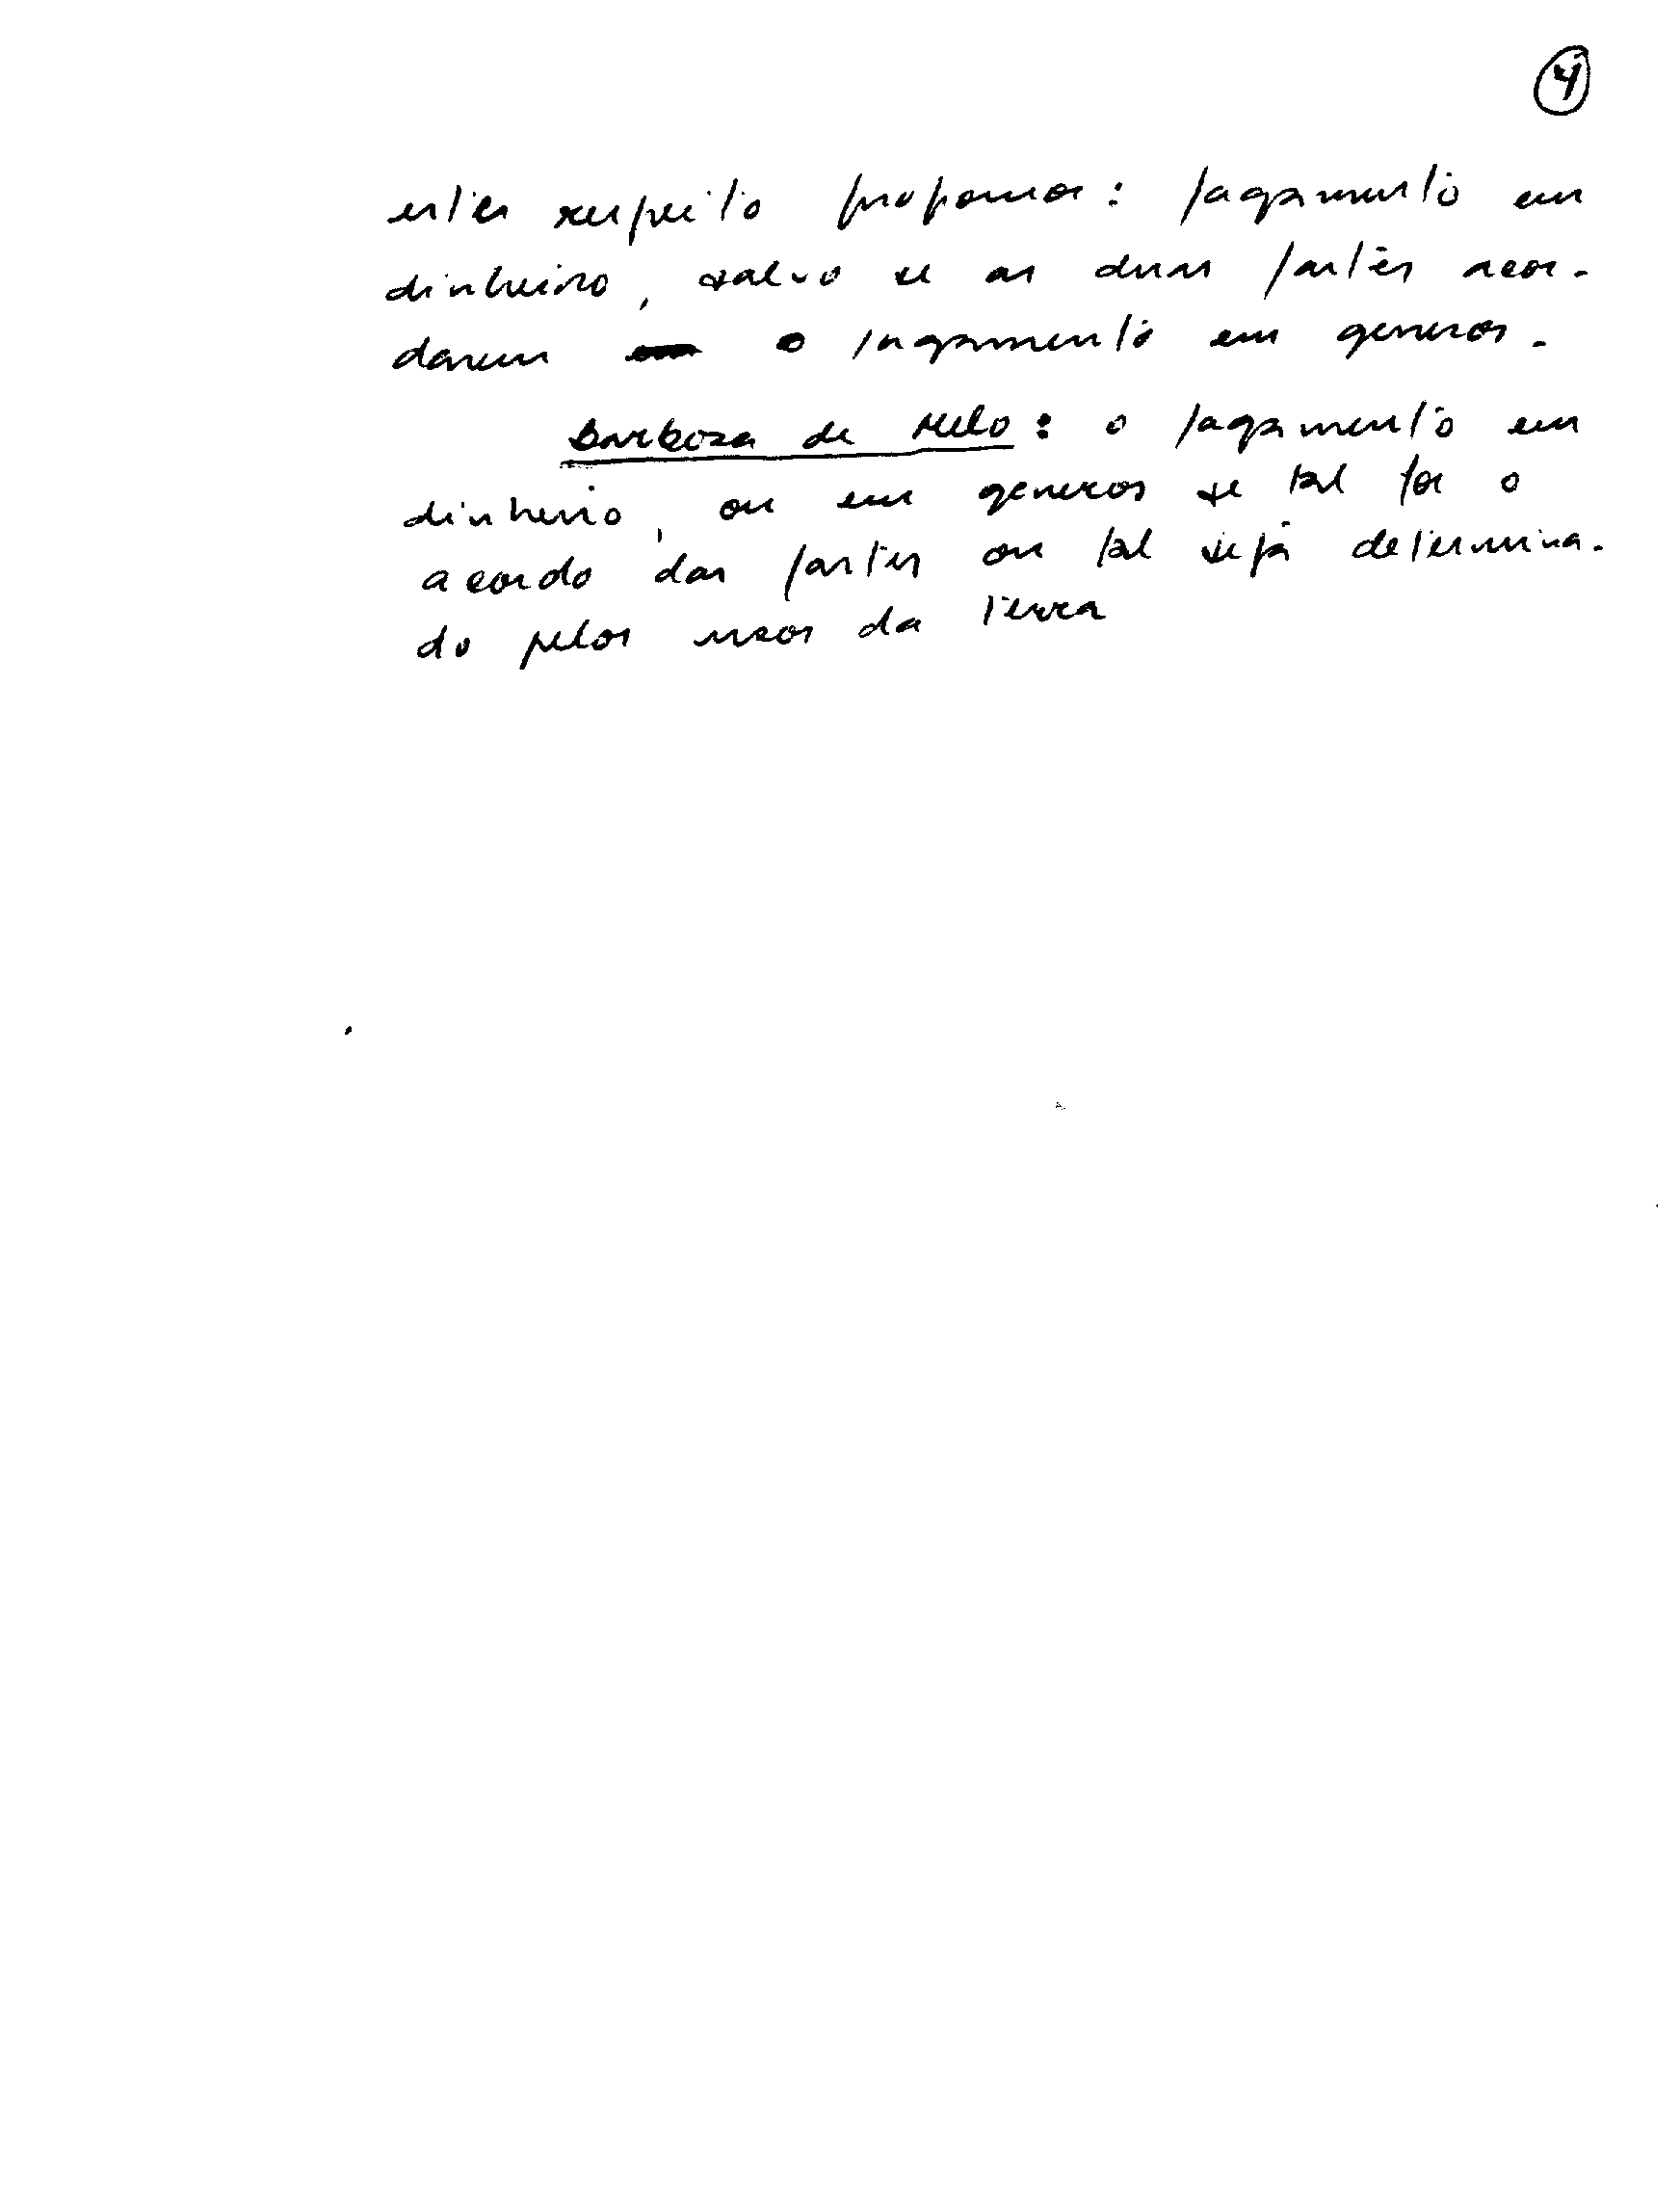 4
estes respeito propomos: pagamento em
dinheiro, salvo se as duas partes acor-
darem o pagamento em generos.
Barbosa de Melo: o pagamento em
dinheiro, ou em generos se tal for o
acordo das partes ou tal seja determina-
do pelos usos da terra